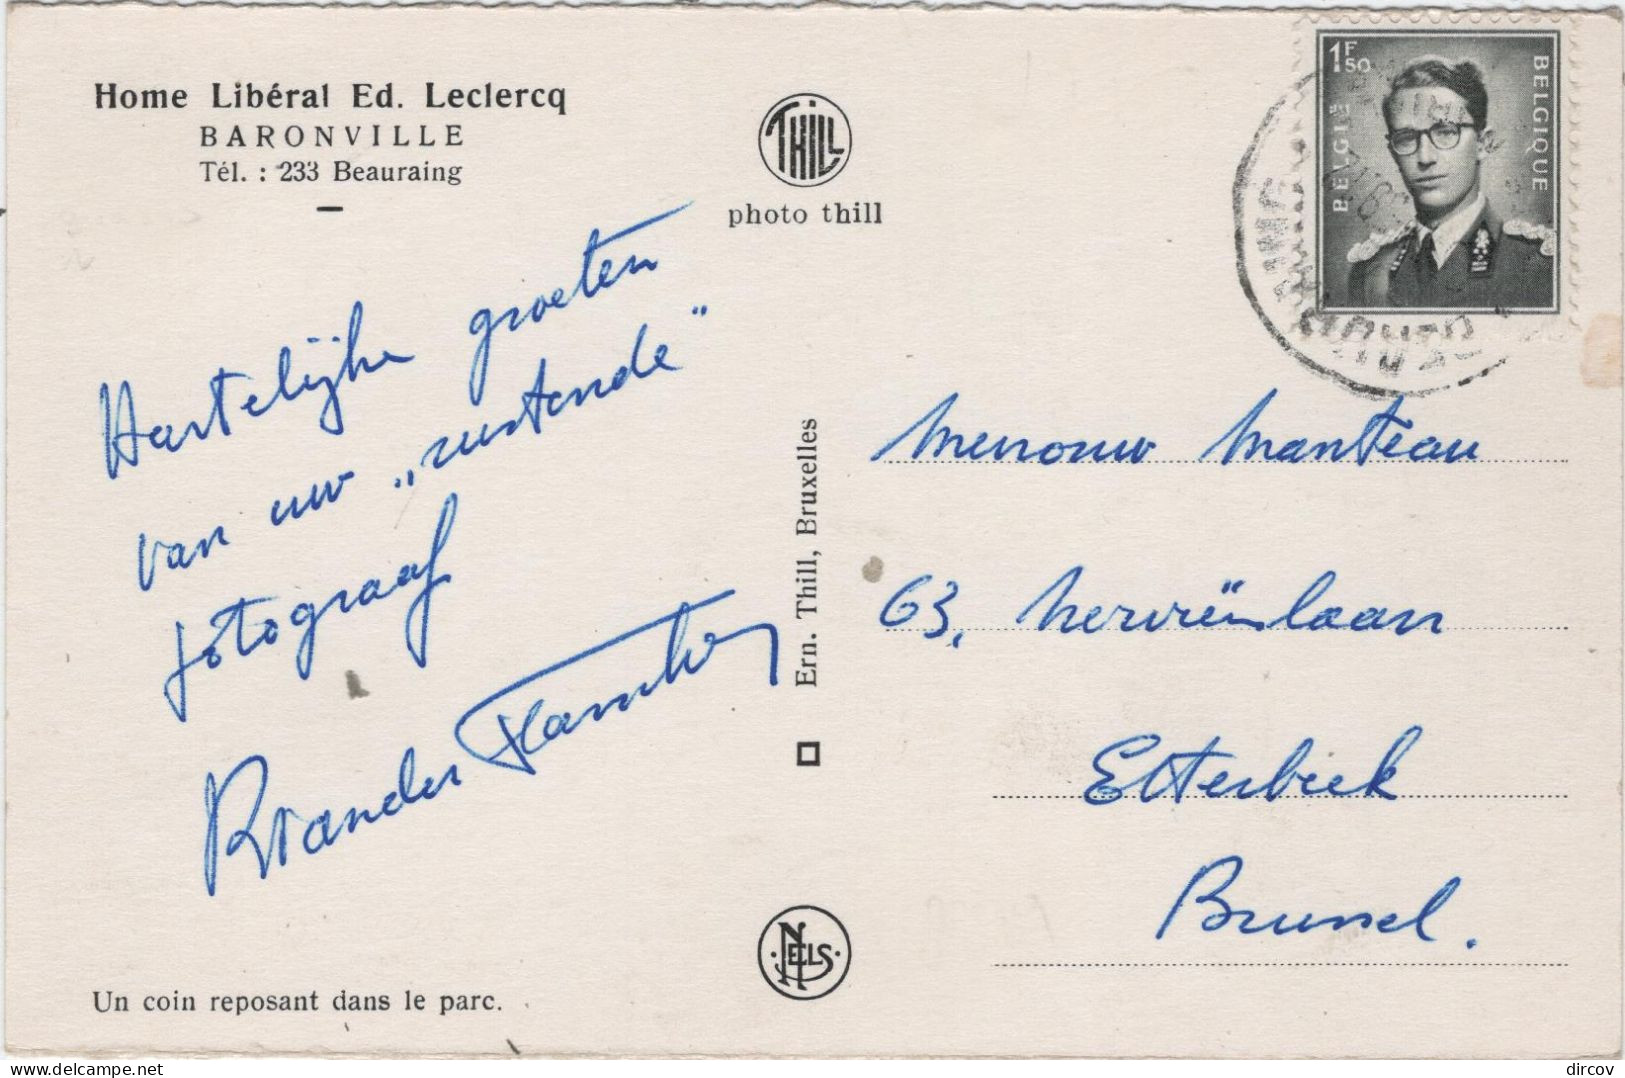 Home Libéral Ed. Leclercq
BARONVILLE
Tél. : 233 Beauraing
THILL
photo thill
1F50
BELGIË
BELGIQUE
Hartelijke groeten
van uw „rustende”
fotograaf
Ern. Thill, Bruxelles
Mevrouw Manteau
63, Nerviënlaan
Etterbeek
Brussel.
NELS
Un coin reposant dans le parc.
delcampe.net
dircov